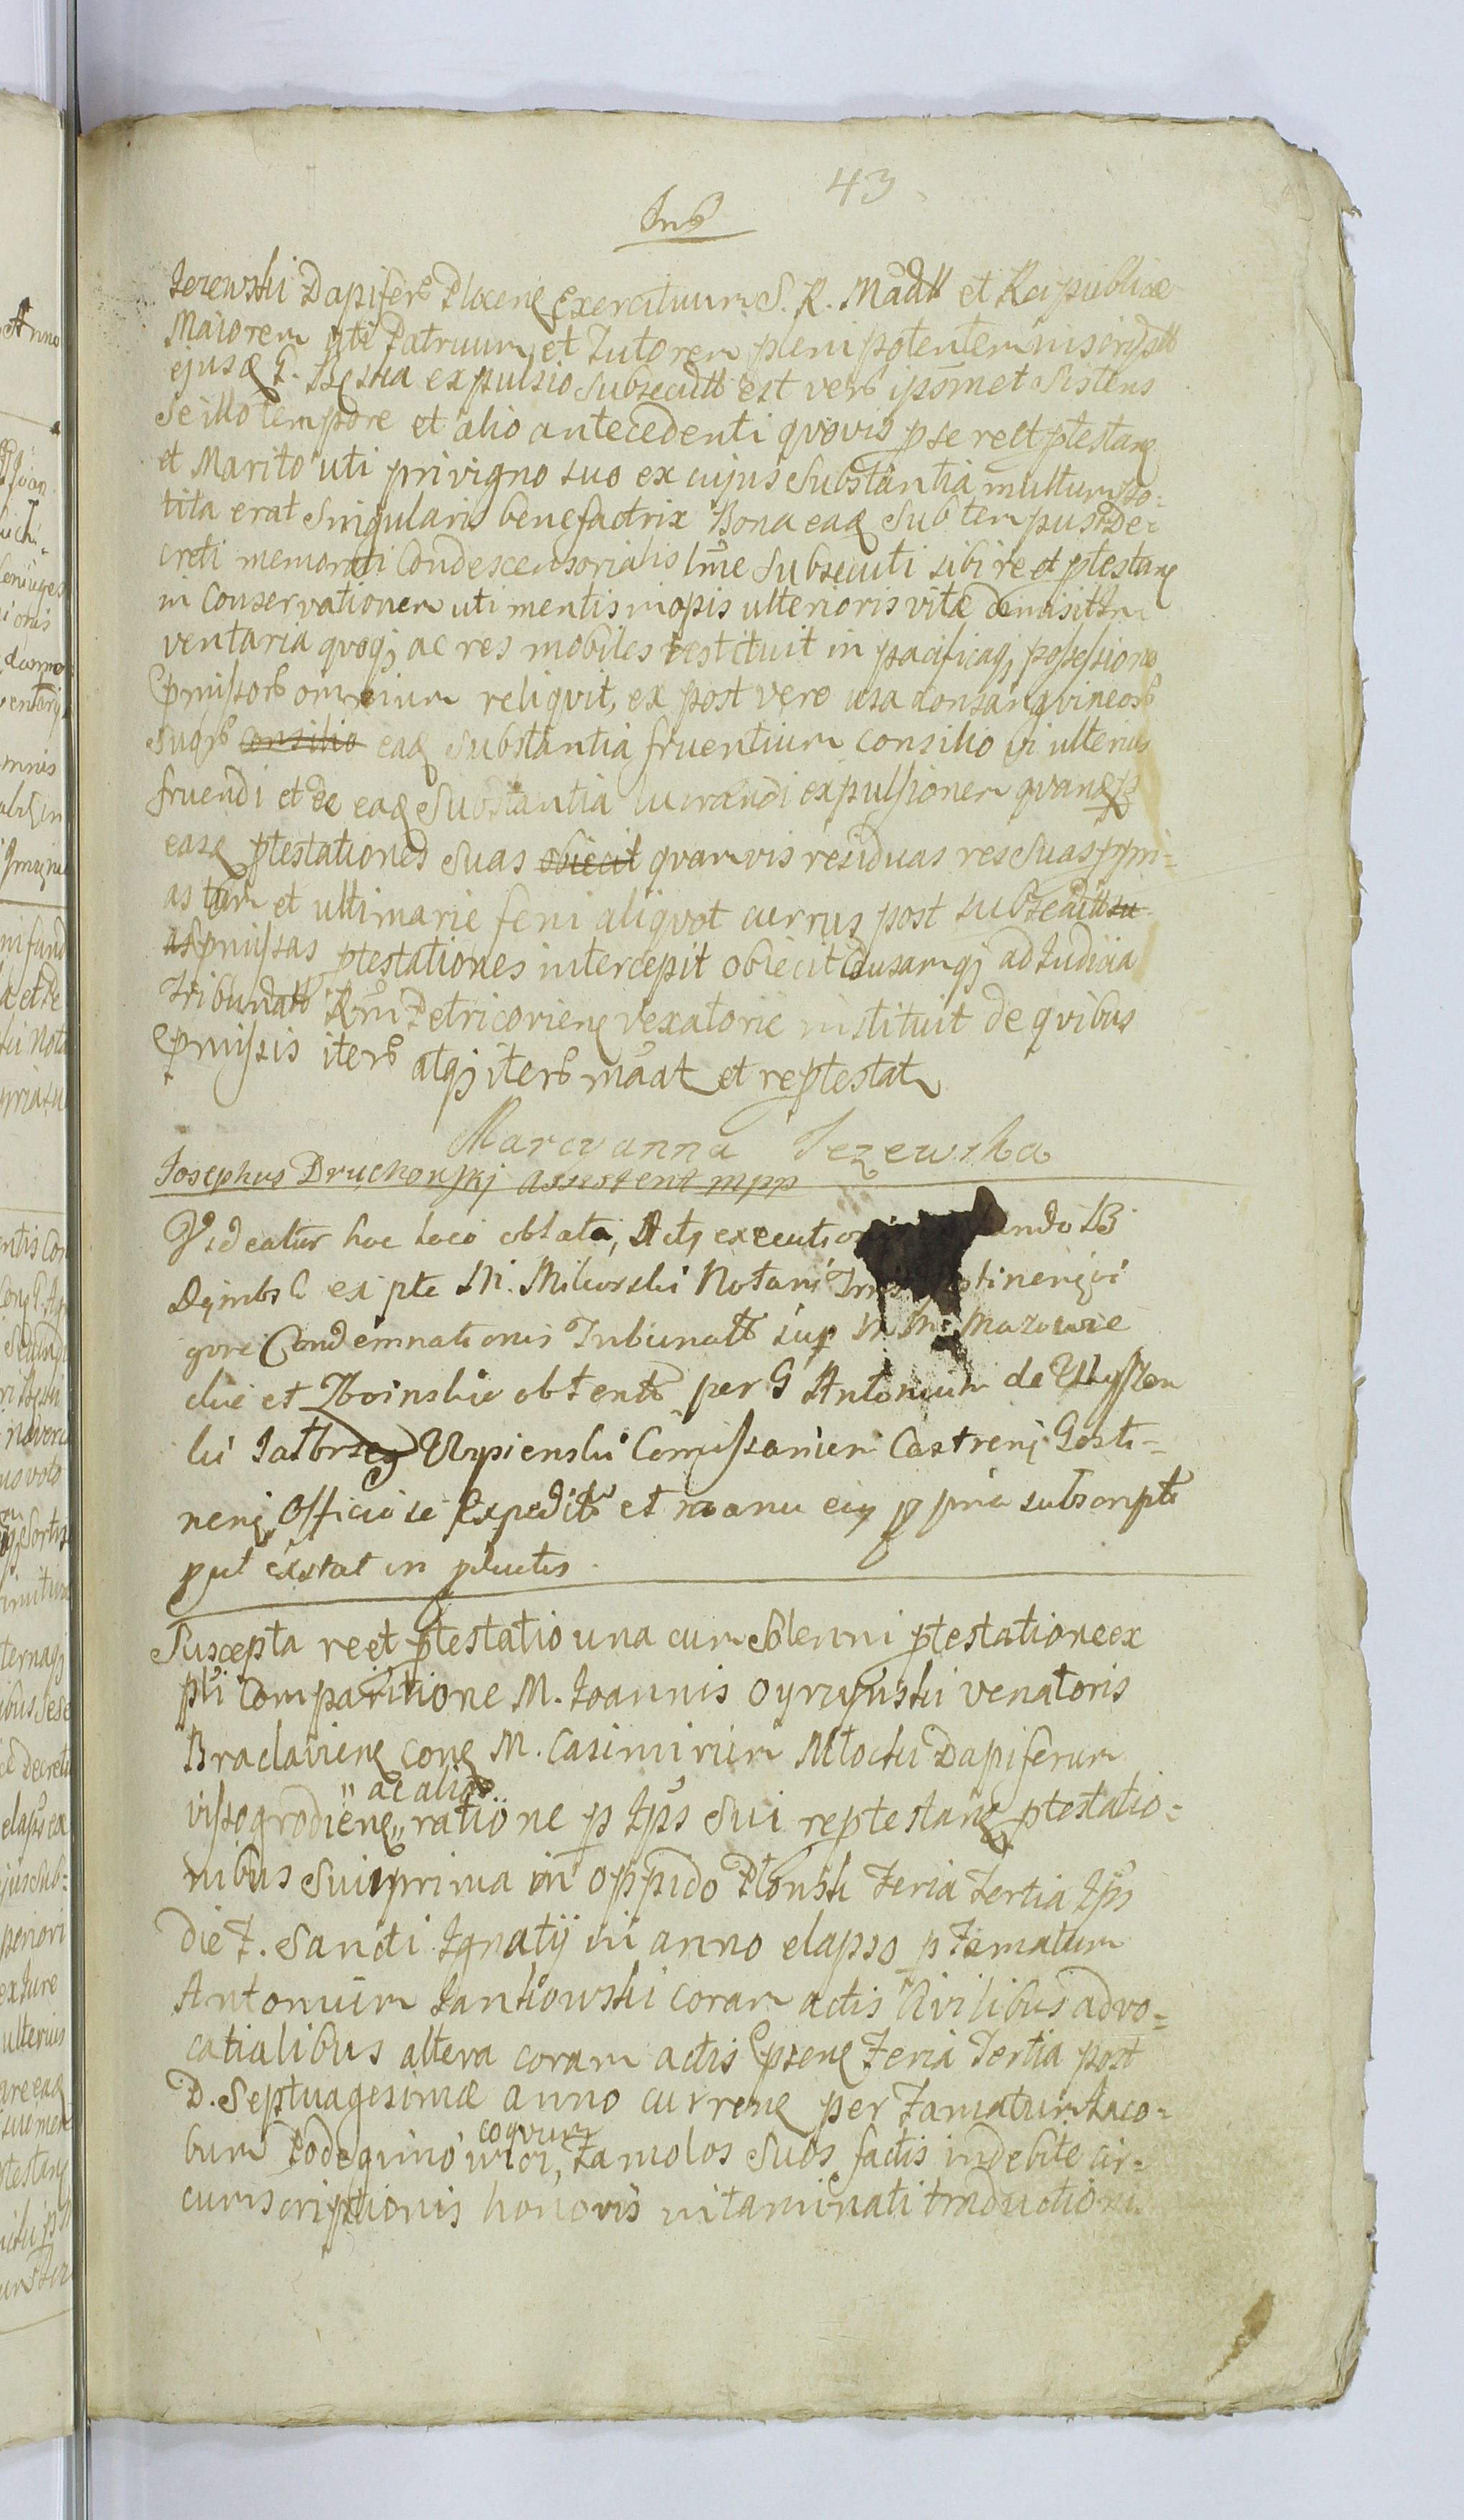 43
Inb
Jezewski Dapiferū Plocenę Exercituum S. R. Maâtt et Reipublicae
Maiorem uti Patruum et Tutorem plenipotentem
ejusą G. expulsio subsecutt est verū ipsmet sistens
se illo tempore et alio antecedenti quovis p se reet ptestanę
et Marito uti privigno suo ex cujus substantia multum so-
tita erat singularis benefactrix Bona eaą sub tempus De-
creti memorati Condescensorialis lme subsecuti sibi re et ptestanę
in Conservationem uti mentis inopis ulterioris vitæ demisit In
ventaria quoqj ac res mobiles restituit in pacificaqj possessione
pmissorū omnium reliqvit, ex post vero usa consangvineorū
suorū consilio eaą substantia fruentium consilio vi ulterius
fruendi et de eaą substantia lucrandi expulsionem
easą ptestationes suas obiecit qvamvis residuas res suas ppri-
as tum et ultimarie feni aliqvot currus post subsecutt su
as pmissas ptestationes intercepit obiecit Causamqj ad Iudicia
Tribunatt Rni Petricovienę vexatorie instituit de qvibus
pmissis iterū atqj iterū mâat et reptestat
Marcyanna Jezewska
Josephus Druchowskj assistent mpp
Videatur hoc loco oblata, Actj executio ando B
Dęmbsk ex pte M. Mikorski Notarij Trris stinenj vi
gore Condemnationis Tribunatt sup M. M. Mazowie
ckie et Zboinskie obtentū per G Antonium de
ki Jatbrzeg Ulypienski Comissarium Castrenj Gosti-
nenj Officiose Expeditū et manu eiq ppria subscriptū
put exstat in pductis
Suscepta reet ptestatio una cum solenni ptestatione ex
pti comparitione M. Ioannis Oyrzynski venatoris
Braclavienę conę M. Casimirum Młocki Dapiferum
" ac alios "
vissogrodienę " ratione p Ips sui reptestanę ptestatio-
nibus suis prima in oppido Płonsk Feria Tertia Ips
die F. Sancti Ignatij in anno elapso p Famatum
Antonium Jankowski coram actis Civilibus advo-
catialibus altera coram actis psenę Feria Tertia post
D. Septuagesimæ anno currenę per Famatum Iaco-
coqvum
bum, Famolos suos factis indebite cir-
cumscriptionis honoris intaminati traductionis